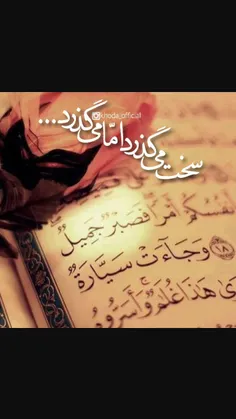 khoda_official
سخت می‌گذرد امّا می‌گذرد...
أَنفُسُكُمْ أَمْرًا فَصَبْرٌ جَمِيلٌ
۝١٨ وَجَاءَتْ سَيَّارَةٌ
هَٰذَا غُلَٰمٌ ۚ وَأَسَرُّوهُ